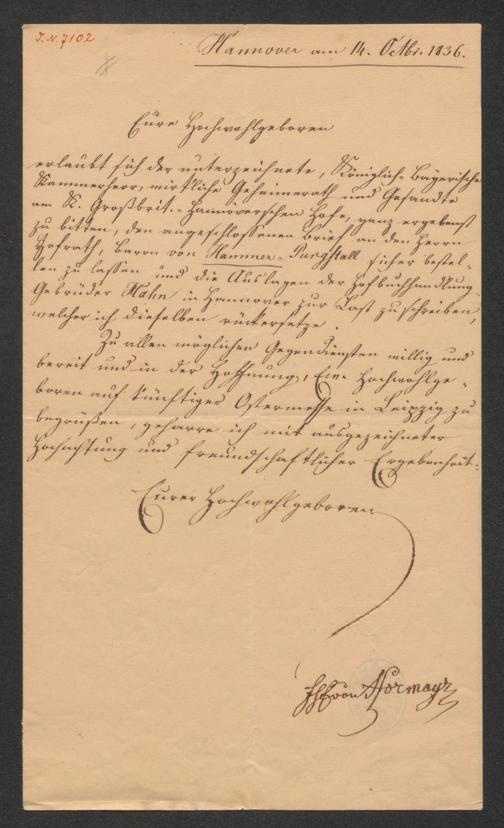 I.N. 7102
Hannover am 14. Octbr. 1836.
Eure Hochwohlgeboren
erlaubt sich der unterzeichnete, Königlich Bayerische
Kammerherr, wirkliche Geheimerath und Gesandte
am K. Großbrit.-Hannöverschen Hofe, ganz ergebenst
zu bitten, den angeschlossenen Brief an den Herrn
Hofrath, Baron von Hammer-Purgstall sicher bestel-
len zu lassen und die Auslagen der Hofbuchhandlung
Gebrüder Hahn in Hannover zur Last zu schreiben,
welcher ich dieselben rückersetze.
Zu allen möglichen Gegendiensten willig und
bereit und in der Hoffnung, Eure Hochwohlge-
boren auf künftiger Ostermesse in Leipzig zu
begrüßen, geharre ich mit ausgezeichneter
Hochachtung und freundschaftlicher Ergebenheit.
Eurer Hochwohlgeboren
Hormayr